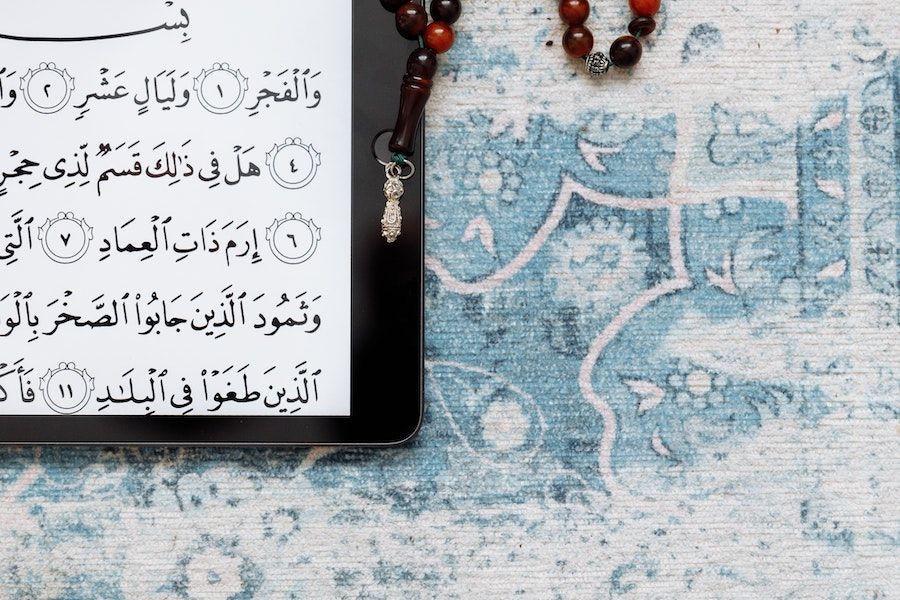 وَٱلْفَجْرِ ١ وَلَيَالٍ عَشْرٍ ٢
٤ هَلْ فِى ذَٰلِكَ قَسَمٌ لِّذِى حِجْرٍ
٦ إِرَمَ ذَاتِ ٱلْعِمَادِ ٧ ٱلَّتِى
وَثَمُودَ ٱلَّذِينَ جَابُوا۟ ٱلصَّخْرَ
ٱلَّذِينَ طَغَوْا۟ فِى ٱلْبِلَٰدِ ١١